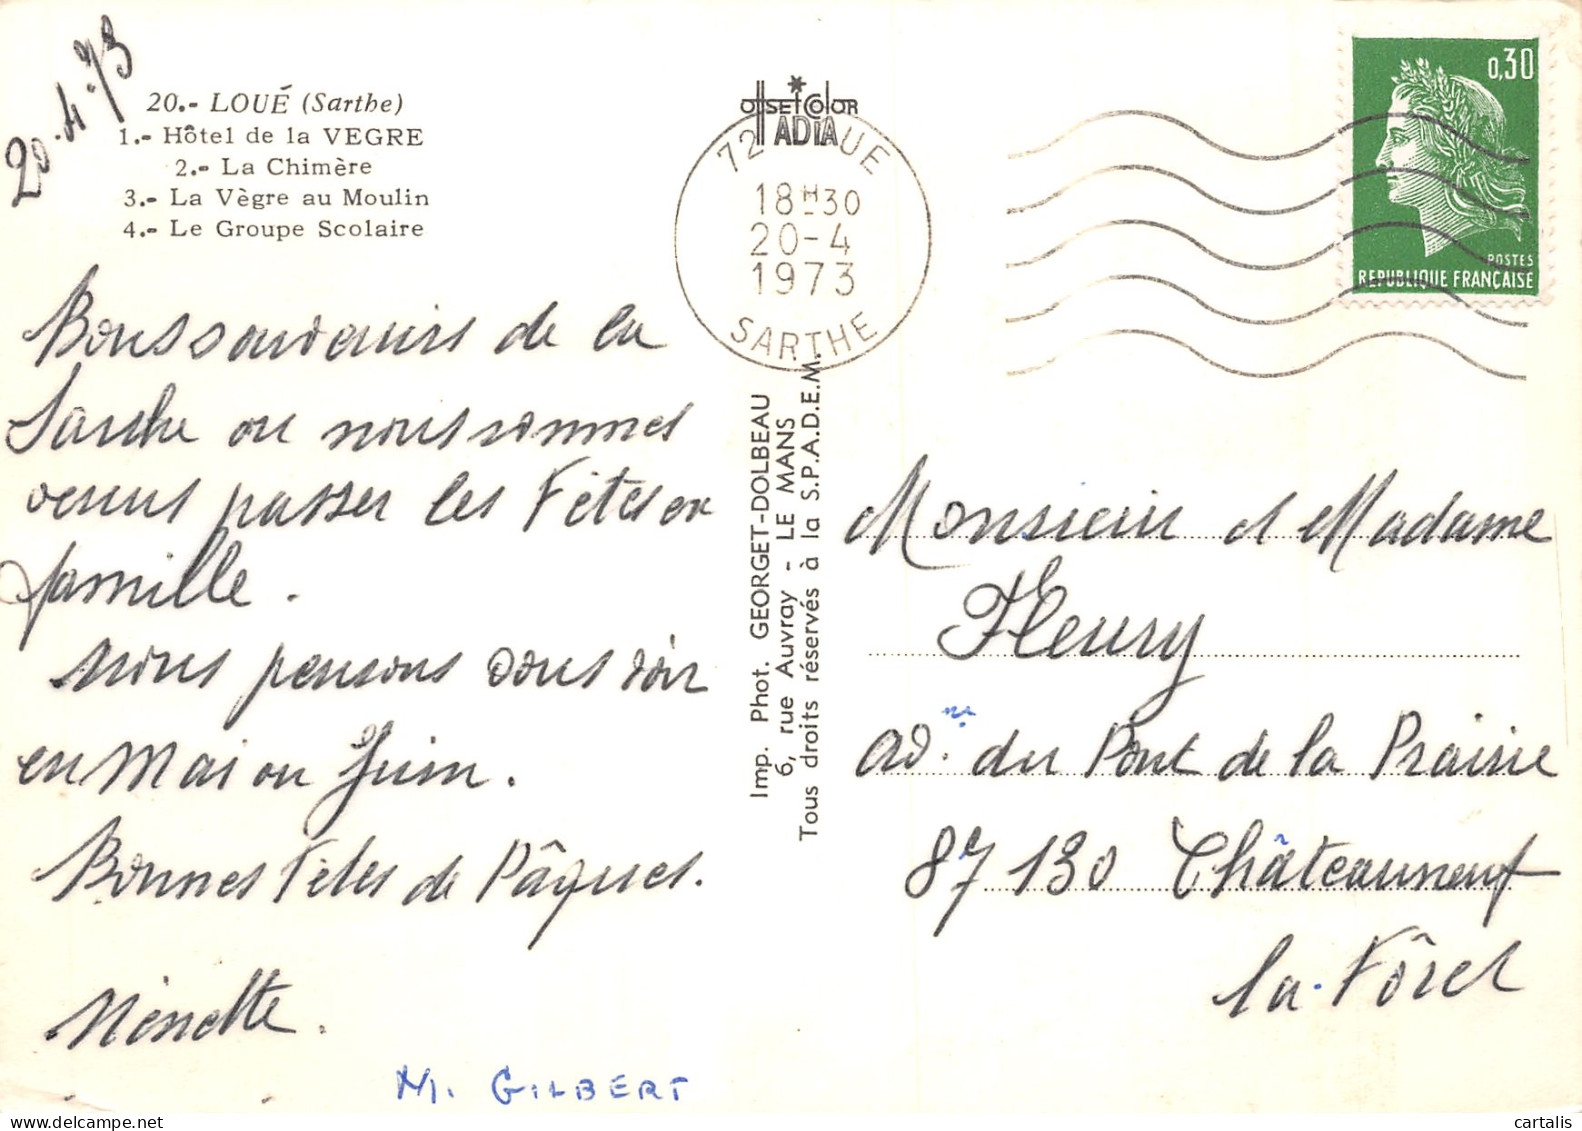 20.4.73
20.- LOUÉ (Sarthe)
1.- Hôtel de la VEGRE
2.- La Chimère
3.- La Vègre au Moulin
4.- Le Groupe Scolaire
Bons souvenirs de la
Sarthe ou nous sommes
venus passer les Fêtes en
famille.
Nous pensons vous voir
en Mai ou Juin.
Bonnes Fêtes de Pâques.
Nénette.
M. GILBERT
offset color
ADIA
72 LOUE
18H30
20-4
1973
SARTHE
Imp. Phot. GEORGET-DOLBEAU
6, rue Auvray - LE MANS
Tous droits réservés à la S.P.A.D.E.M.
0,30
POSTES
REPUBLIQUE FRANÇAISE
Monsieur et Madame
Fleury
av. ne du Pont de la Prairie
87130 Châteauneuf
la.Fôret
cartalis